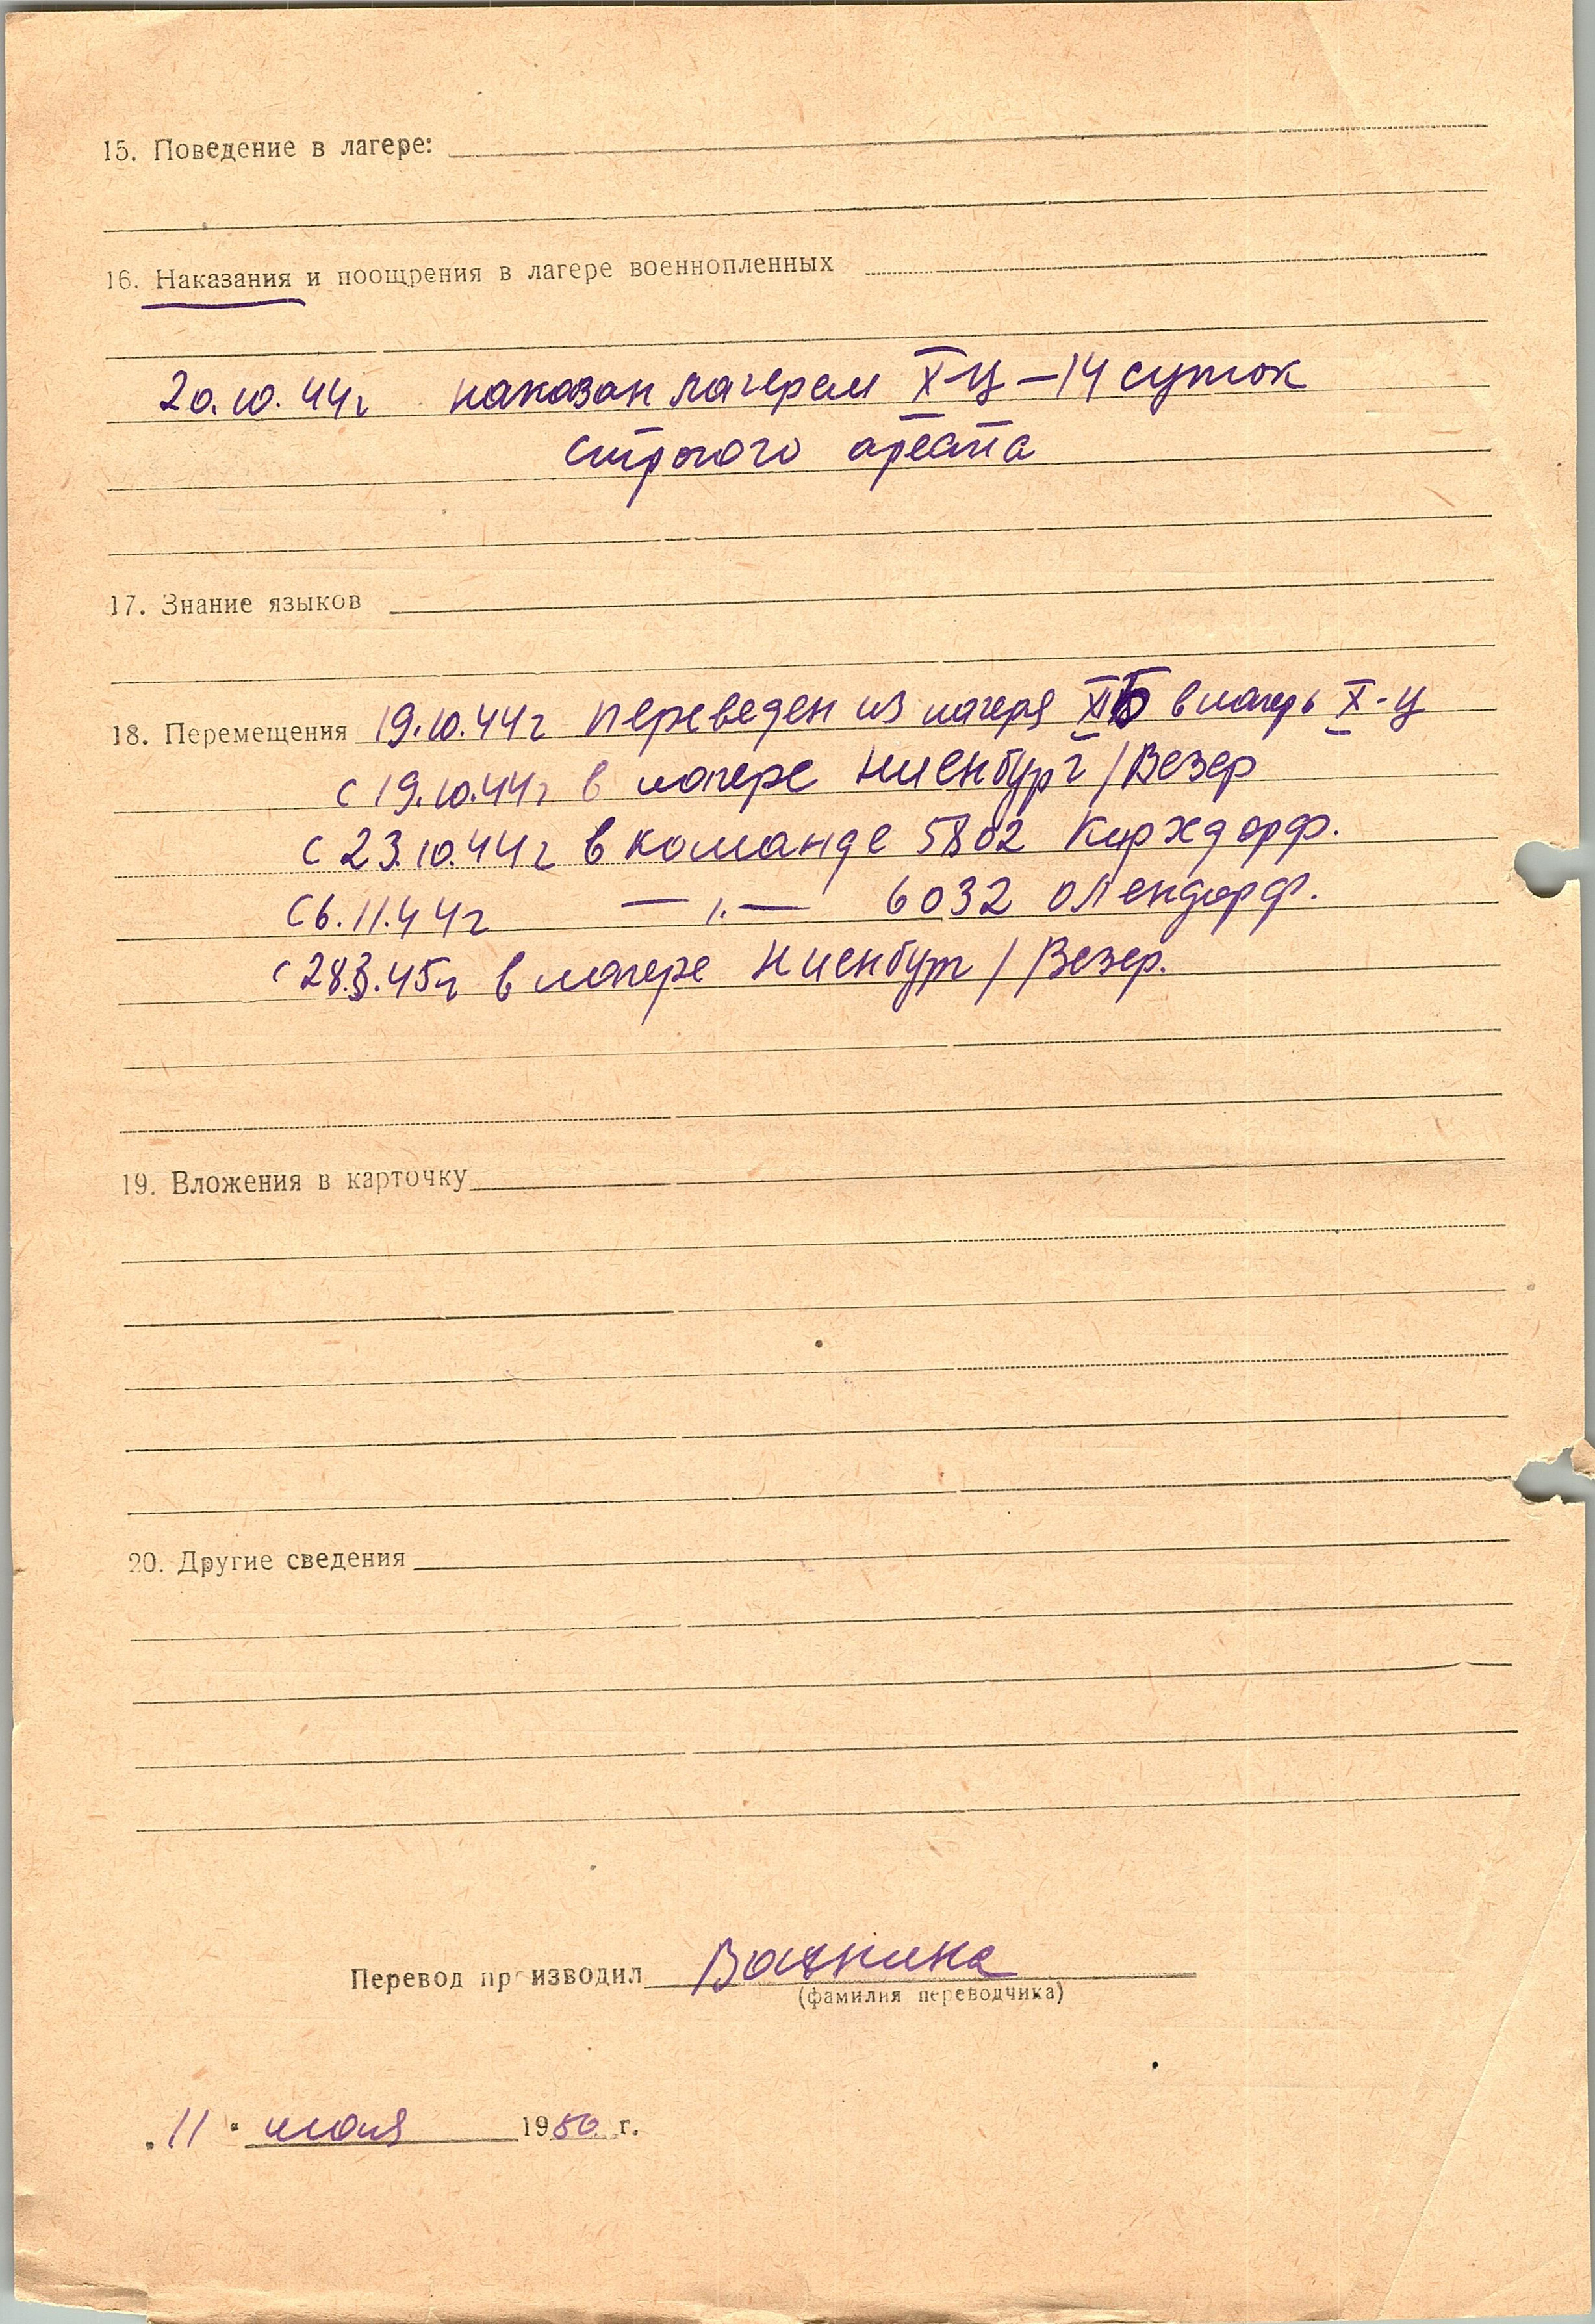 15. Поведение в лагере:
16. Наказания и поощрения в лагере военнопленных
20.10.44г наказан лагерем X-Ц – 14 суток
строгого ареста
17. Знание языков
18. Перемещения 19.10.44г переведен из лагеря XIБ в лагерь X-Ц
с 19.10.44г в лагере Ниенбург / Везер
с 23.10.44г в команде 5802 Кирхдорф.
с 6.11.44г — " — 6032 Олендорф.
с 28.3.45г в лагере Ниенбург / Везер.
19. Вложения в карточку
20. Другие сведения
Перевод производил
(фамилия переводчика)
"11" 1950 г.